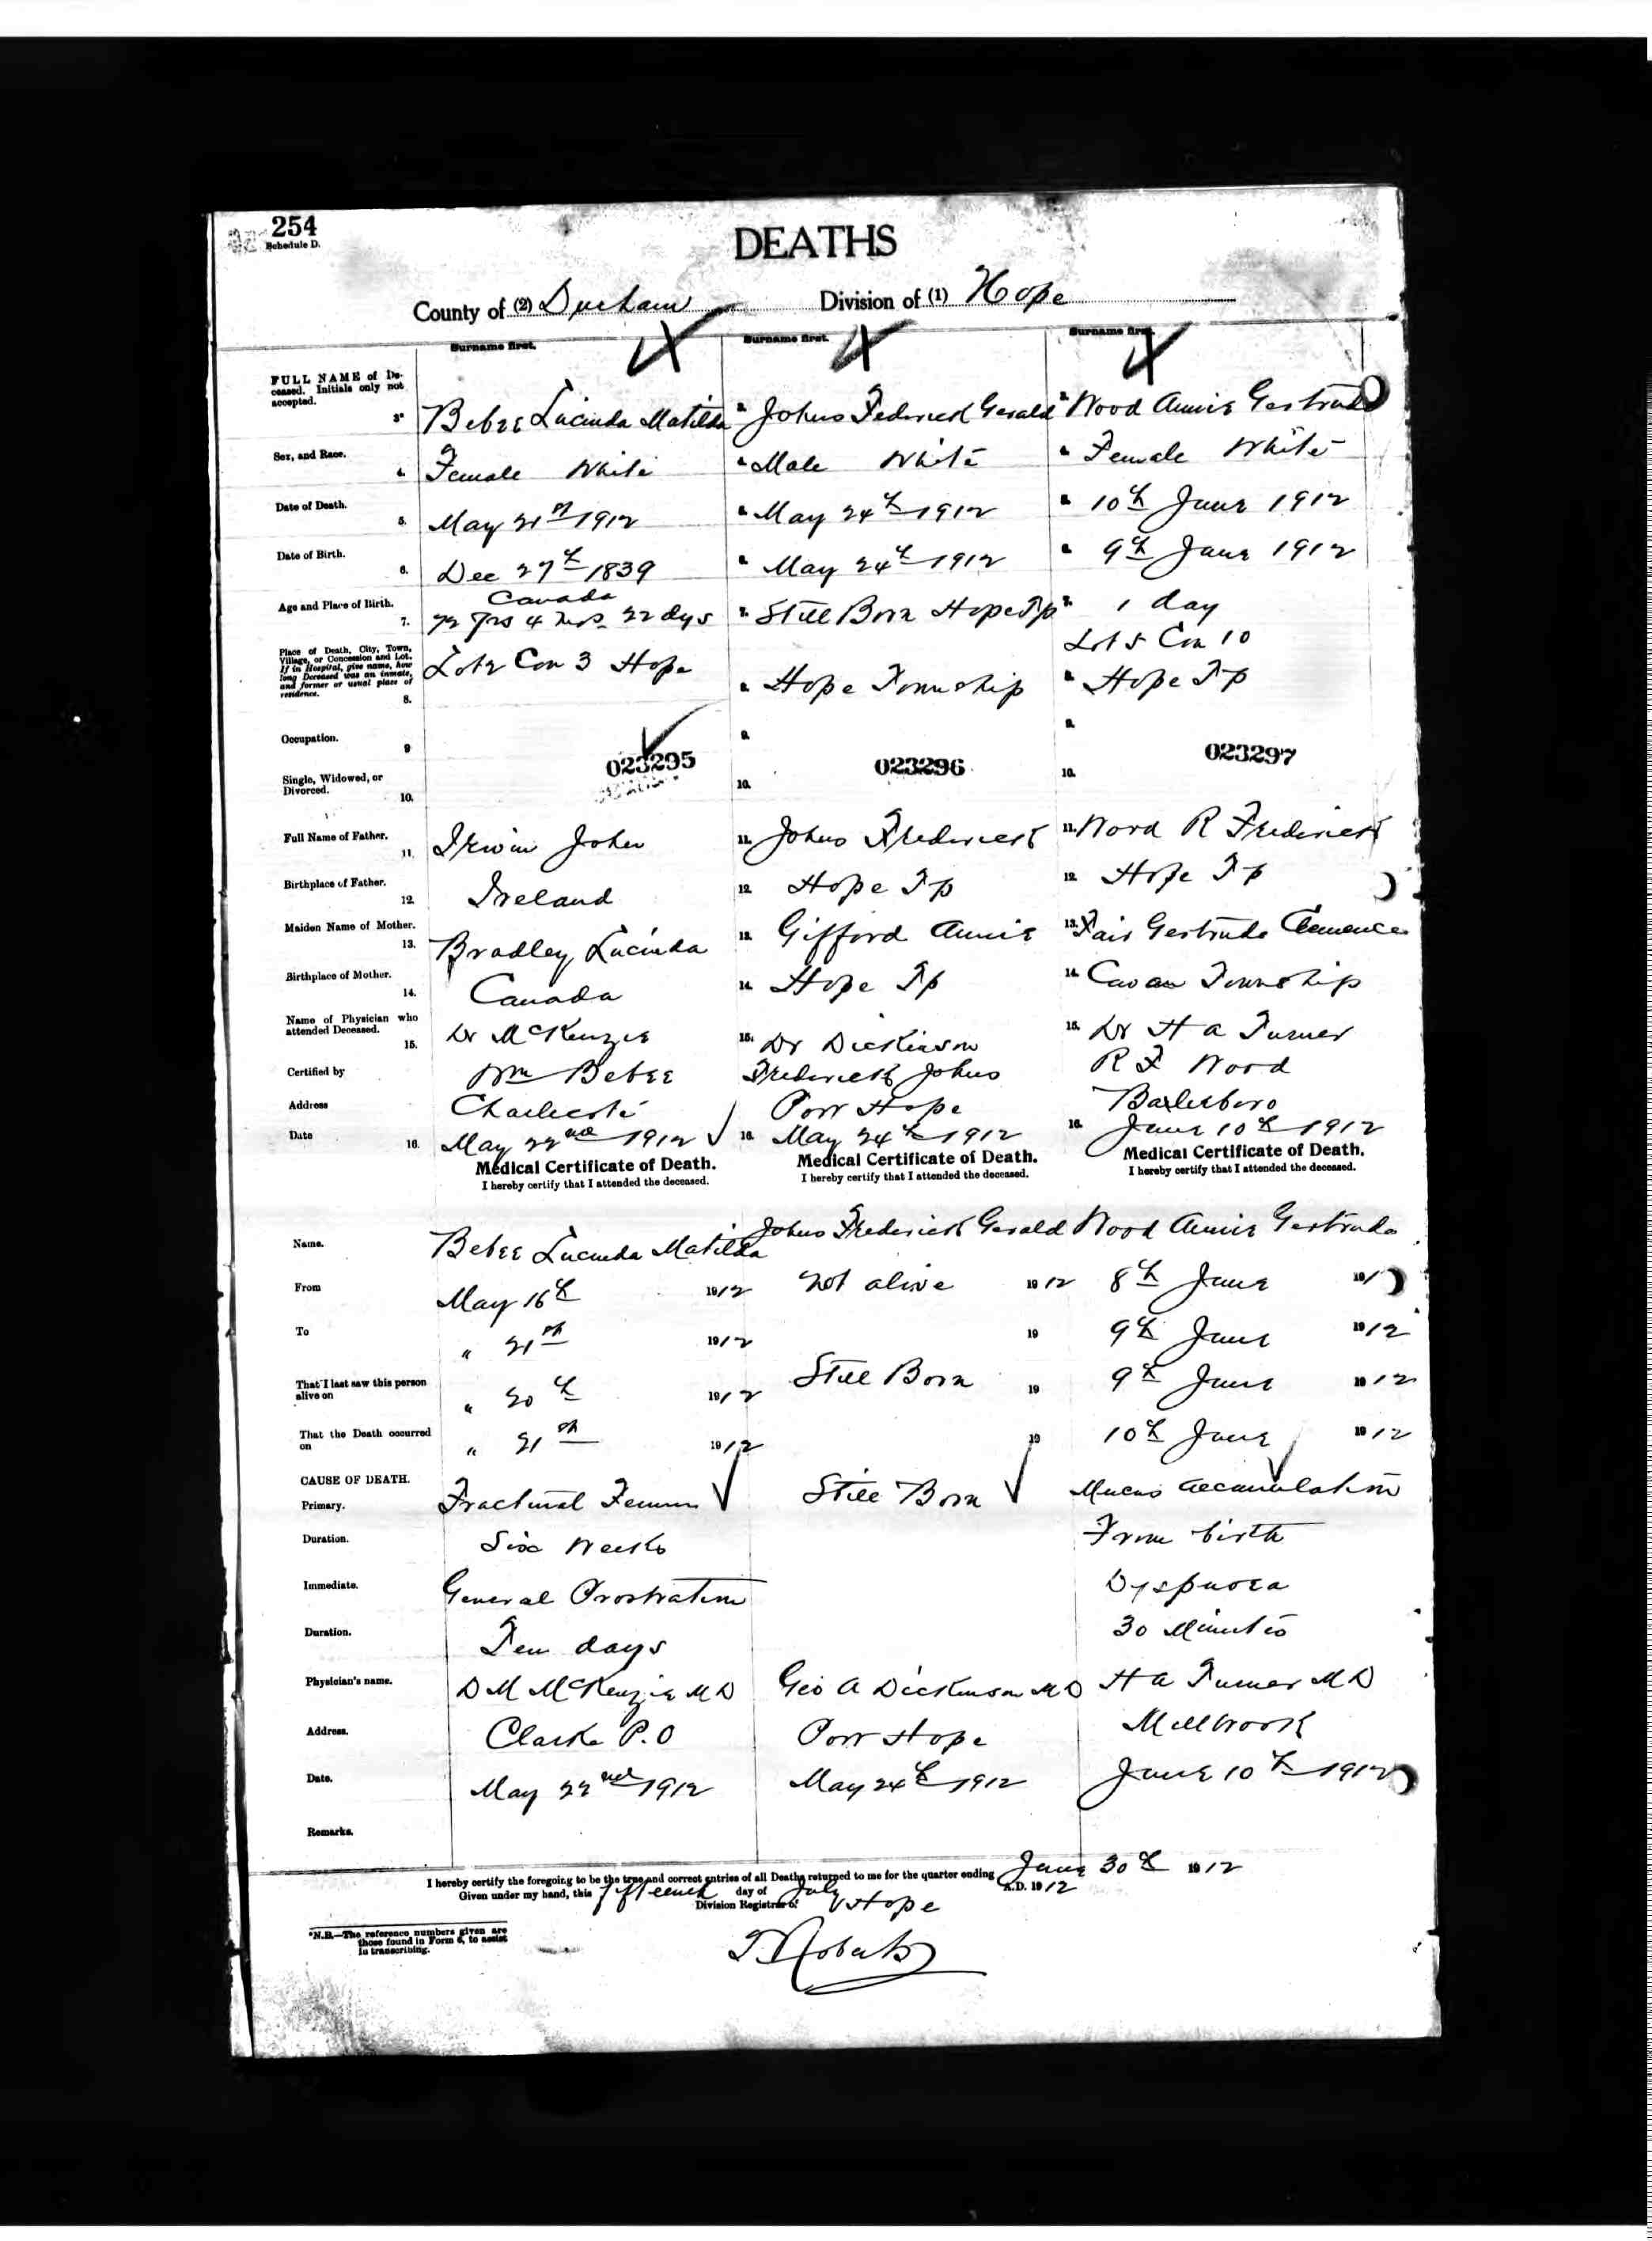 254
Schedule D.
DEATHS
County of (2) Durham Division of (1) Hope
Surname first. Surname first. Surname first.
FULL NAME of Deceased. Initials only not accepted. 3. Bebee Lucinda Matilda 3. Johns Federick Gerald 3. Wood Annie Gertrude
Sex, and Race. 4. Female White 4. Male White 4. Female White
Date of Death. 5. May 21st 1912 5. May 24th 1912 5. 10th June 1912
Date of Birth. 6. Dec 27th 1839 6. May 24th 1912 6. 9th June 1912
Canada
Age and Place of Birth. 7. 72 yrs 4 mos 22 dys 7. Still Born Hope Tp 7. 1 day
Lot 5 Con 10
Place of Death, City, Town, Village, or Concession and Lot. If in Hospital, give name, how long Deceased was an inmate, and former or usual place of residence. 8. Lot 2 Con 3 Hope 8. Hope Township 8. Hope Tp
Occupation. 9 9. 9.
023295 023296 023297
Single, Widowed, or Divorced. 10. 10. 10.
Full Name of Father. 11. Irwin John 11. Johns Frederick 11. Wood R Frederick
Birthplace of Father. 12. Ireland 12. Hope Tp 12. Hope Tp
Maiden Name of Mother. 13. Bradley Lucinda 13. Gifford Annie 13. Fair Gertrude Clemence
Birthplace of Mother. 14. Canada 14. Hope Tp 14. Cavan Township
Name of Physician who attended Deceased. 15. Dr McKenzie 15. Dr Dickinson 15. Dr H A Turner
Certified by Wm Bebee Frederick Johns R F Wood
Address Charlecote Port Hope
Date 16. May 22nd 1912 16. May 24th 1912 16. June 10th 1912
Medical Certificate of Death. Medical Certificate of Death. Medical Certificate of Death.
I hereby certify that I attended the deceased. I hereby certify that I attended the deceased. I hereby certify that I attended the deceased.
Name. Bebee Lucinda Matilda Johns Frederick Gerald Wood Annie Gertrude
From May 16th 1912 Not alive 1912 8th June 191
To " 21st 1912 19 9th June 1912
That I last saw this person alive on " 20th 1912 Still Born 19 9th June 1912
That the Death occurred on " 21st 1912 19 10th June 1912
CAUSE OF DEATH.
Primary. Fractured Femur Still Born Mucus accumulation
Duration. Six Weeks From birth
Immediate. General Prostration Dyspnoea
Duration. Ten days 30 Minutes
Physician's name. D M McKenzie M D Geo A Dickinson M D H A Turner M D
Address. Clarke P.O Port Hope Millbrook
Date. May 22nd 1912 May 24th 1912 June 10th 1912
Remarks.
I hereby certify the foregoing to be the true and correct entries of all Deaths returned to me for the quarter ending June 30th 1912
Given under my hand, this fifteenth day of July A.D. 1912
Division Registrar of Hope
*N.B.—The reference numbers given are those found in Form 6, to assist in transcribing.
T Roberts